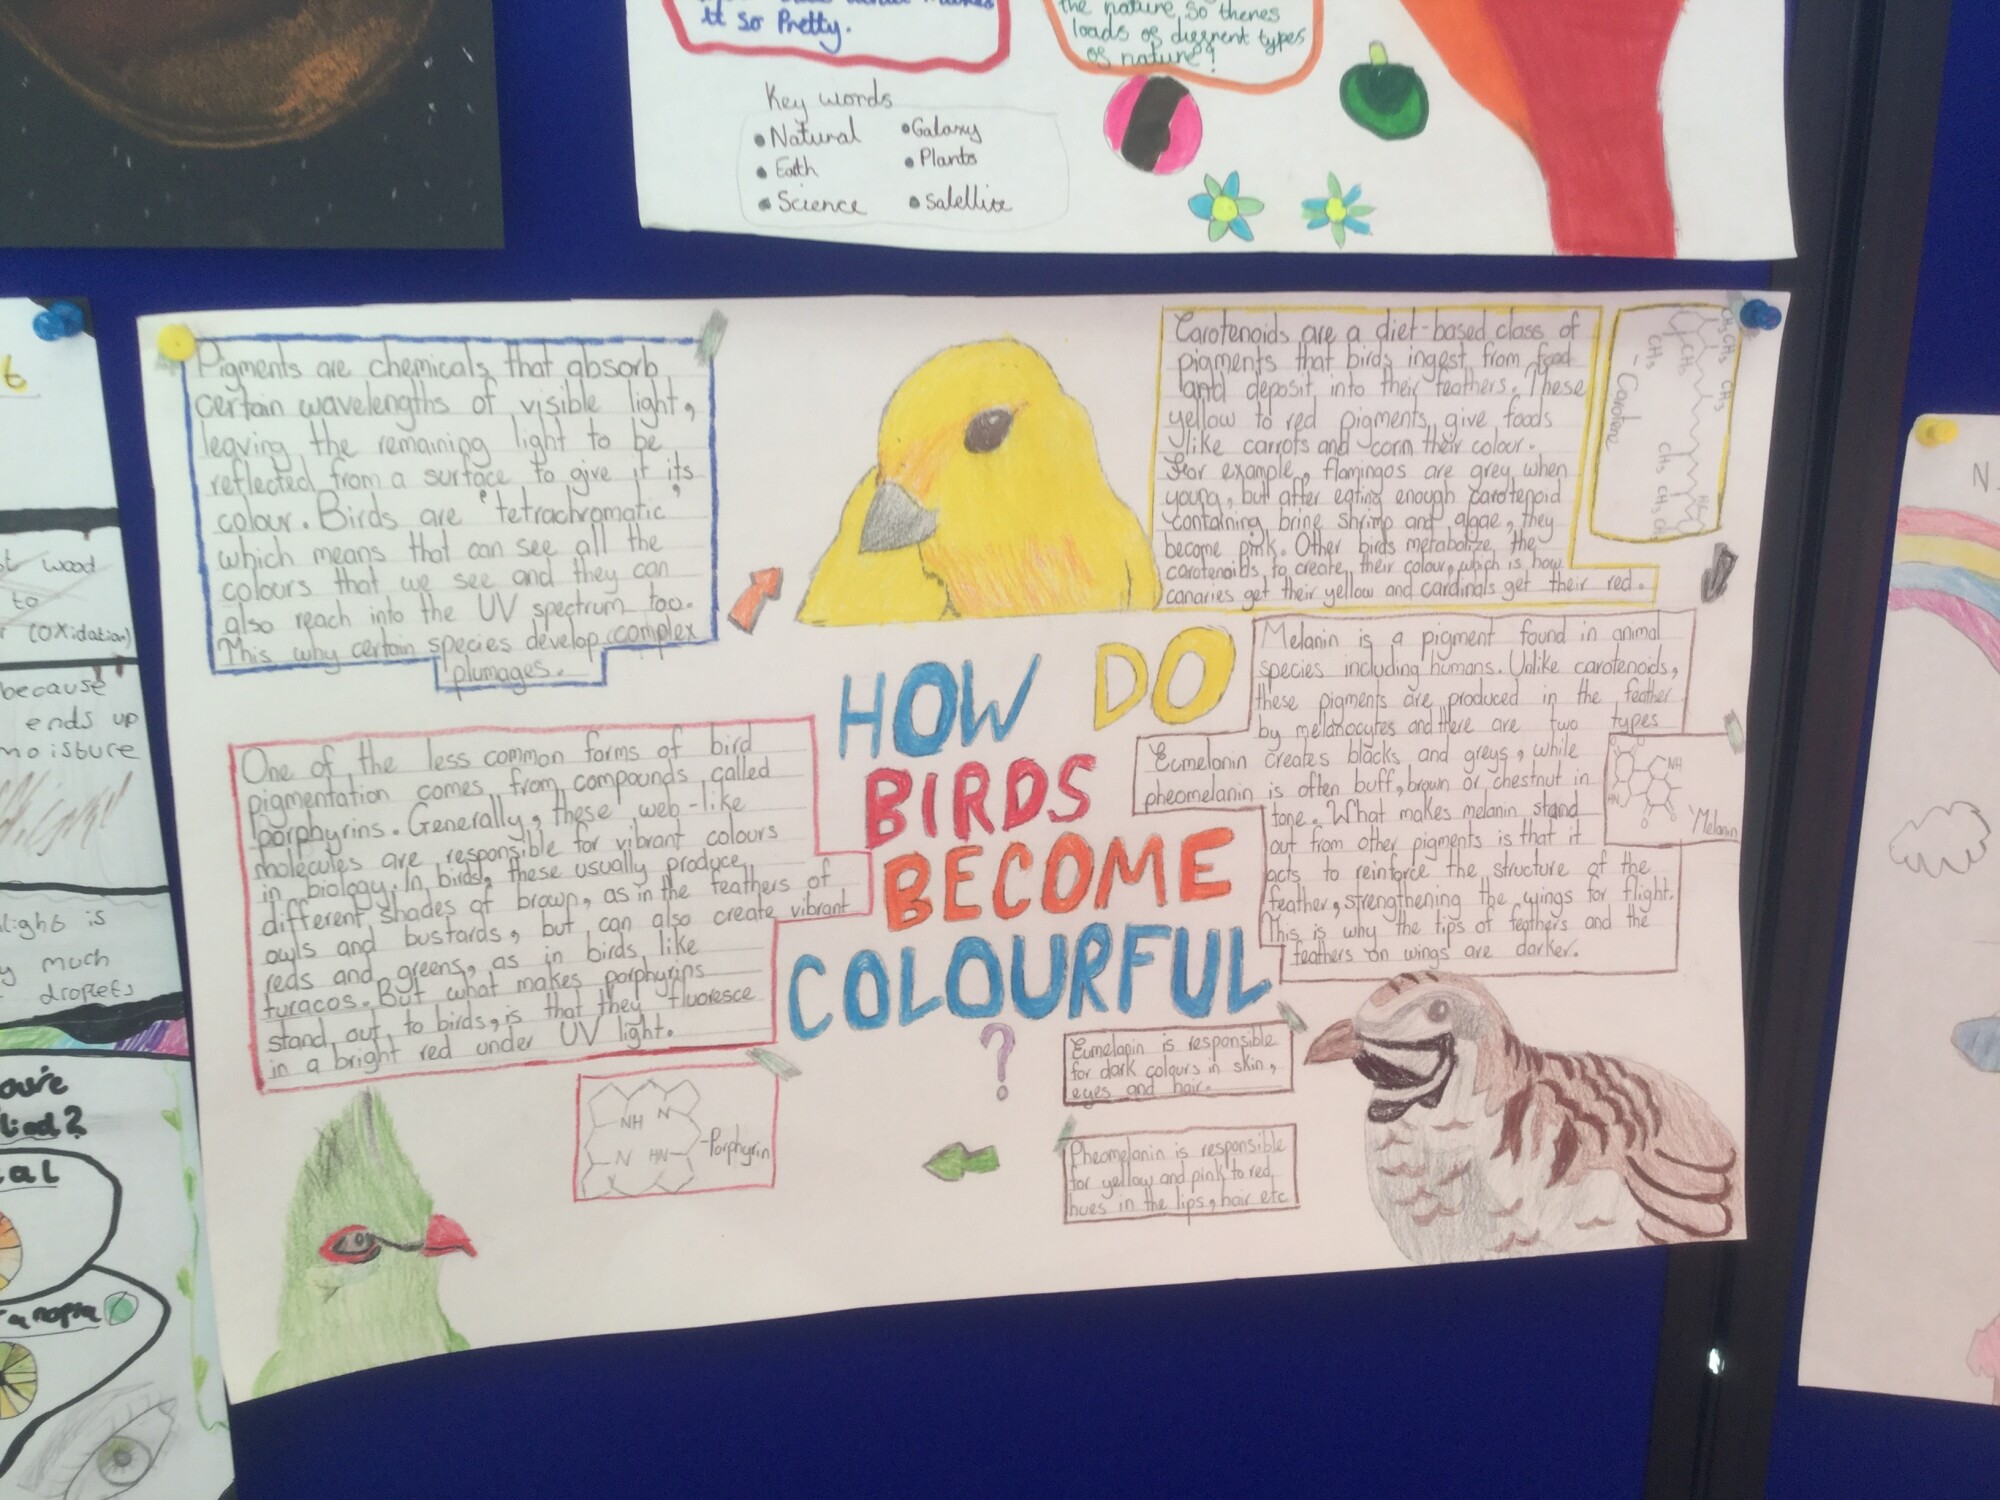 it so Pretty.
the nature, so theres
loads of different types
of nature!
Key words
Natural
Earth
Science
Galaxy
Plants
Satellite
Pigments are chemicals that absorb
certain wavelengths of visible light,
leaving the remaining light to be
reflected from a surface to give it its
colour. Birds are 'tetrachromatic'
which means that can see all the
colours that we see and they can
also reach into the UV spectrum too.
This why certain species develop complex
plumages.
Carotenoids are a diet-based class of
pigments that birds ingest from food
and deposit into their feathers. These
yellow to red pigments give foods
like carrots and corn their colour.
For example, flamingos are grey when
young, but after eating enough carotenoid
containing brine shrimp and algae, they
become pink. Other birds metabolize the
carotenoids to create their colour, which is how
canaries get their yellow and cardinals get their red.
CH₃ CH₃ CH₃
CH₃
CH₃
- Carotene
CH₃ CH₃
HOW DO
BIRDS
BECOME
COLOURFUL
?
Melanin is a pigment found in animal
species including humans. Unlike carotenoids,
these pigments are produced in the feather
by melanocytes and there are two types
Eumelanin creates blacks and greys, while
pheomelanin is often buff, brown or chestnut in
tone. What makes melanin stand
out from other pigments is that it
acts to reinforce the structure of the
feather, strengthening the wings for flight.
This is why the tips of feathers and the
feathers on wings are darker.
NH
HN
O
O
Melanin
One of the less common forms of bird
pigmentation comes from compounds called
porphyrins. Generally, these web-like
molecules are responsible for vibrant colours
in biology. In birds, these usually produce
different shades of brown, as in the feathers of
owls and bustards, but can also create vibrant
reds and greens, as in birds like
turacos. But what makes porphyrins
stand out to birds, is that they fluoresce
in a bright red under UV light.
NH N
N HN
-Porphyrin
Eumelanin is responsible
for dark colours in skin,
eyes and hair.
Pheomelanin is responsible
for yellow and pink to red
hues in the lips, hair etc
wood
to
(oxidation)
because
ends up
moisture
light is
much
droplets
N